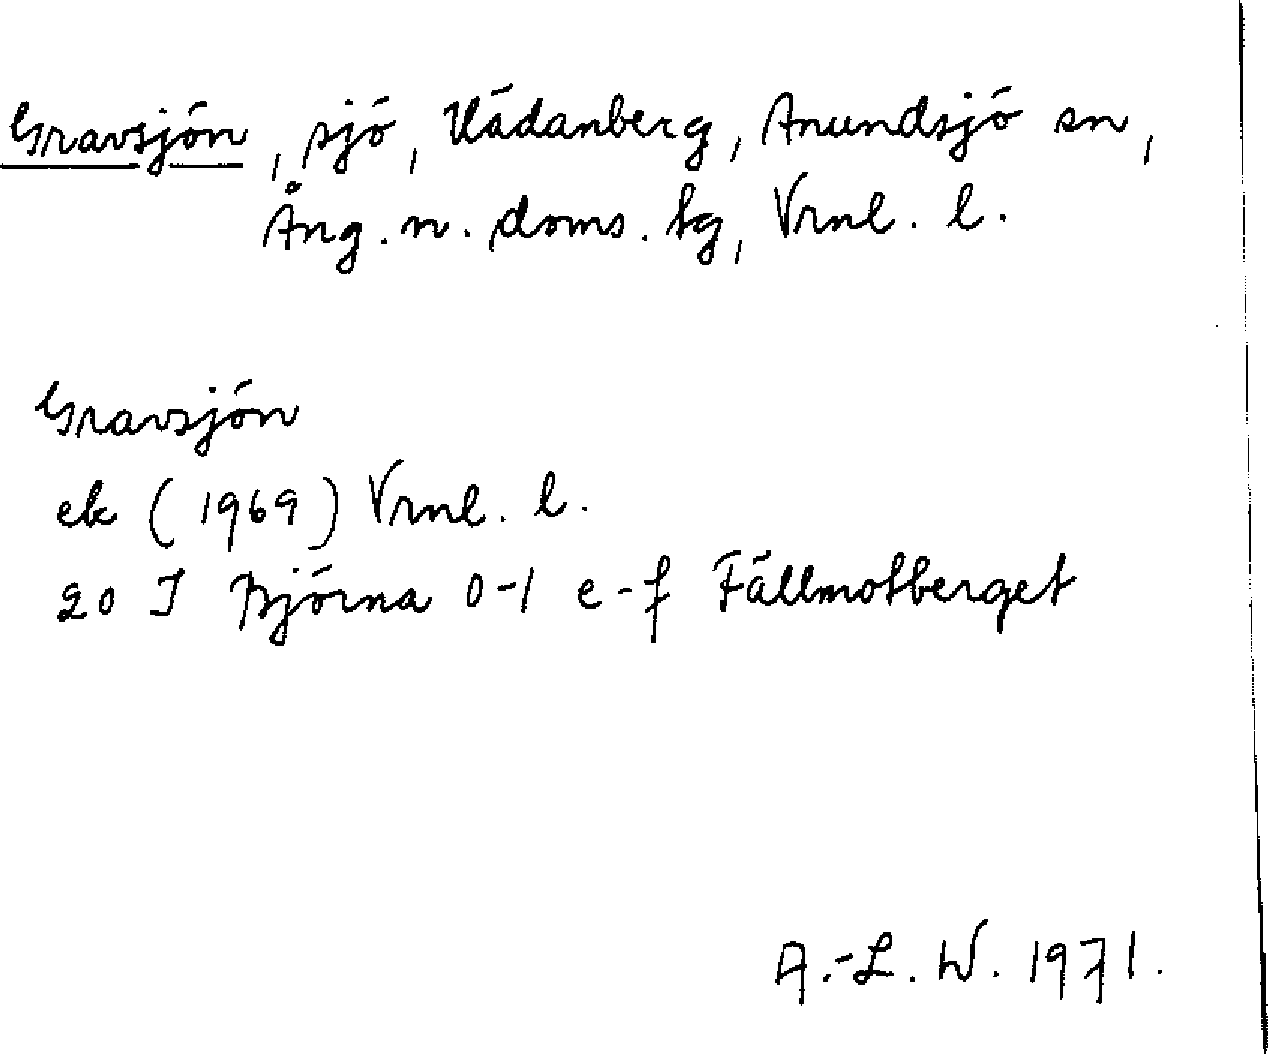 Gravsjön, sjö, Vädanberg, Anundsjö sn,
Ång. n. doms. tg, Vrnl. l.
Gravsjön
ek (1969) Vrnl. l.
20 I Björna 0-1 e-f Fällmotberget
A.-L. W. 1971.